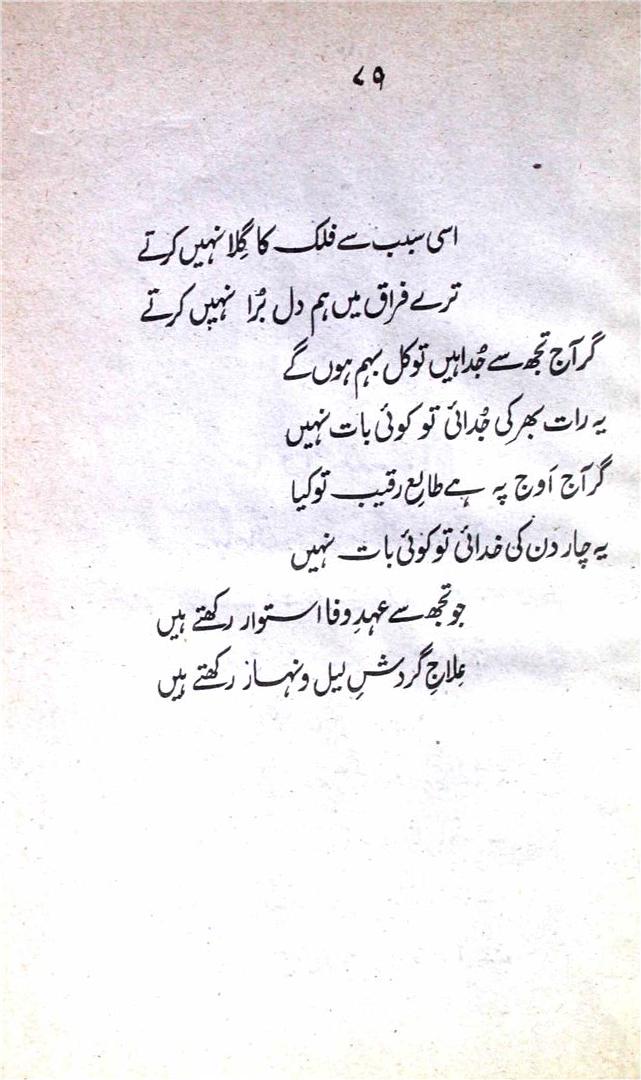 ۷۹
اسی سبب سے فلک کا گِلا نہیں کرتے
ترے فراق میں ہم دل بُرا نہیں کرتے
گر آج تجھ سے جُدا ہیں تو کل بہم ہوں گے
یہ رات بھر کی جُدائی تو کوئی بات نہیں
گر آج اَوج پہ ہے طالعِ رقیب تو کیا
یہ چار دن کی خدائی تو کوئی بات نہیں
جو تجھ سے عہدِ وفا استوار رکھتے ہیں
عِلاجِ گردشِ لیل و نہار رکھتے ہیں